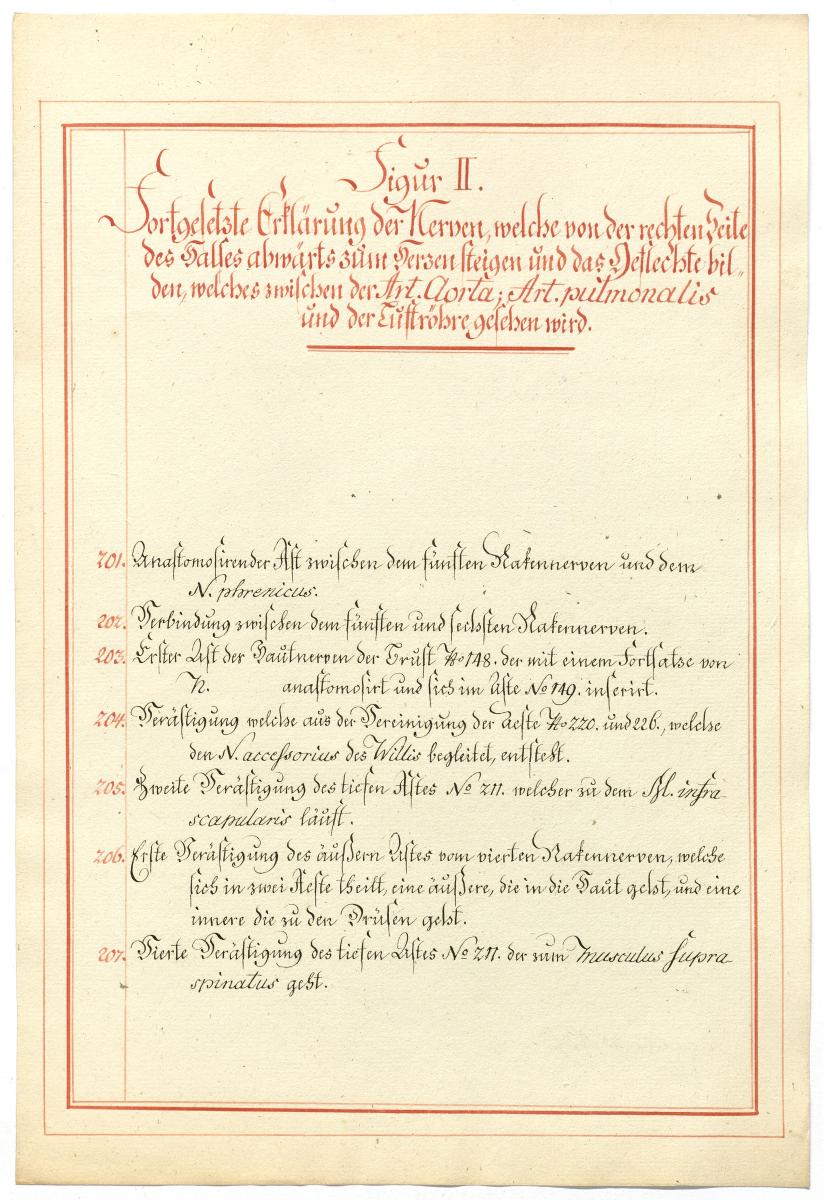 Figur II.
Fortgesetzte Erklärung der Nerven, welche von der rechten Seite
des Halses abwärts zum Herzen steigen und das Geflechte bil„
den, welches zwischen der Art. Aorta; Art. pulmonalis
und der Luftröhre gesehen wird.
201. Anastomosirender Ast zwischen dem fünften Nakennerven und dem
N. phrenicus.
202. Verbindung zwischen dem fünften und sechsten Nakennerven.
203. Erster Ast der Hautnerven der Brust No 148. der mit einem Fortsatze von
N. anastomosirt und sich im Aste No 149. inserirt.
204. Verästigung welche aus der Vereinigung der Aeste No 220. und 226., welche
den N. accessorius des Willis begleitet, entsteht.
205. Zweite Verästigung des tiefen Astes No 211. welcher zu dem M. infra-
scapularis läuft.
206. Erste Verästigung des äußern Astes vom vierten Nakennerven, welche
sich in zwei Aeste theilt, eine äußere, die in die Haut geht, und eine
innere die zu den Drüsen geht.
207. Vierte Verästigung des tiefen Astes No 211. der zum musculus supra-
spinatus geht.